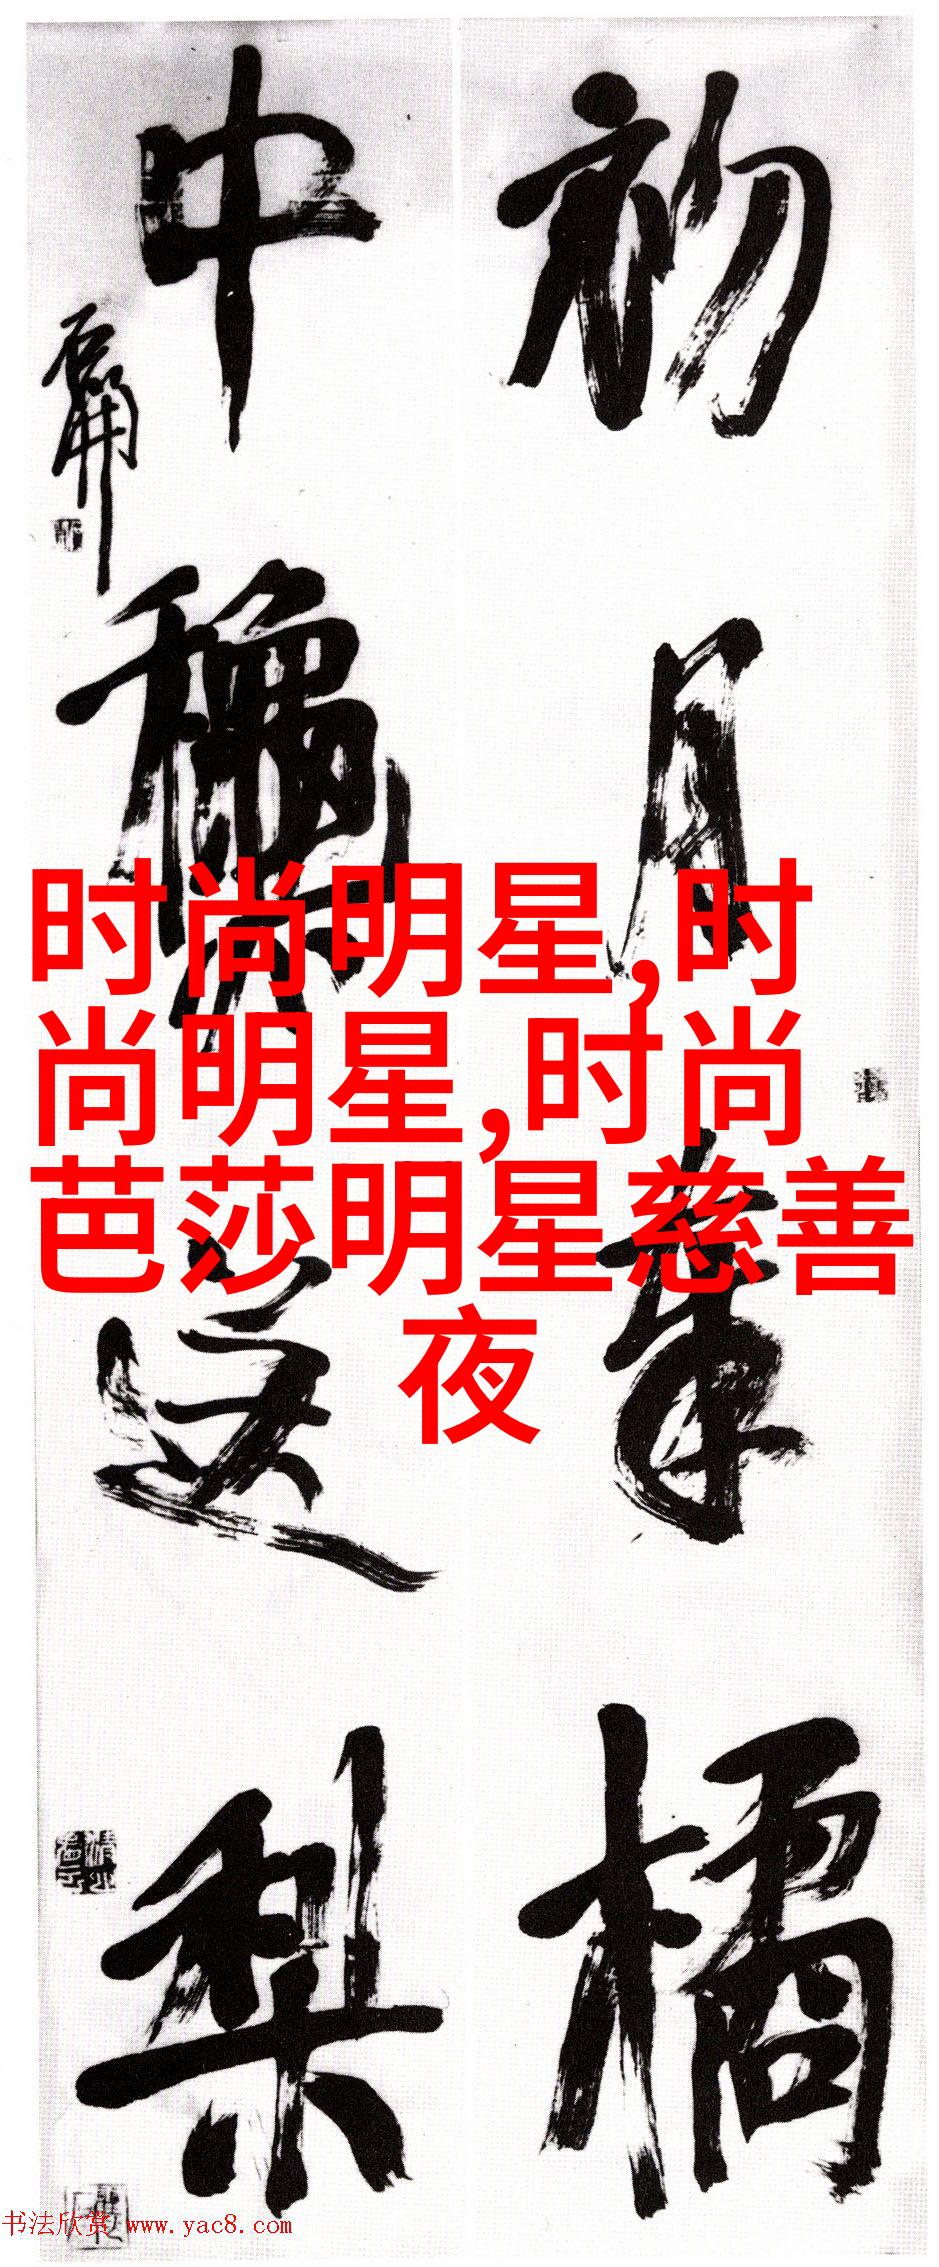 初月奉橘
中龝送梨
时尚明星,时
尚明星,时尚
芭莎明星慈善
夜
书法欣赏 www.yac8.com